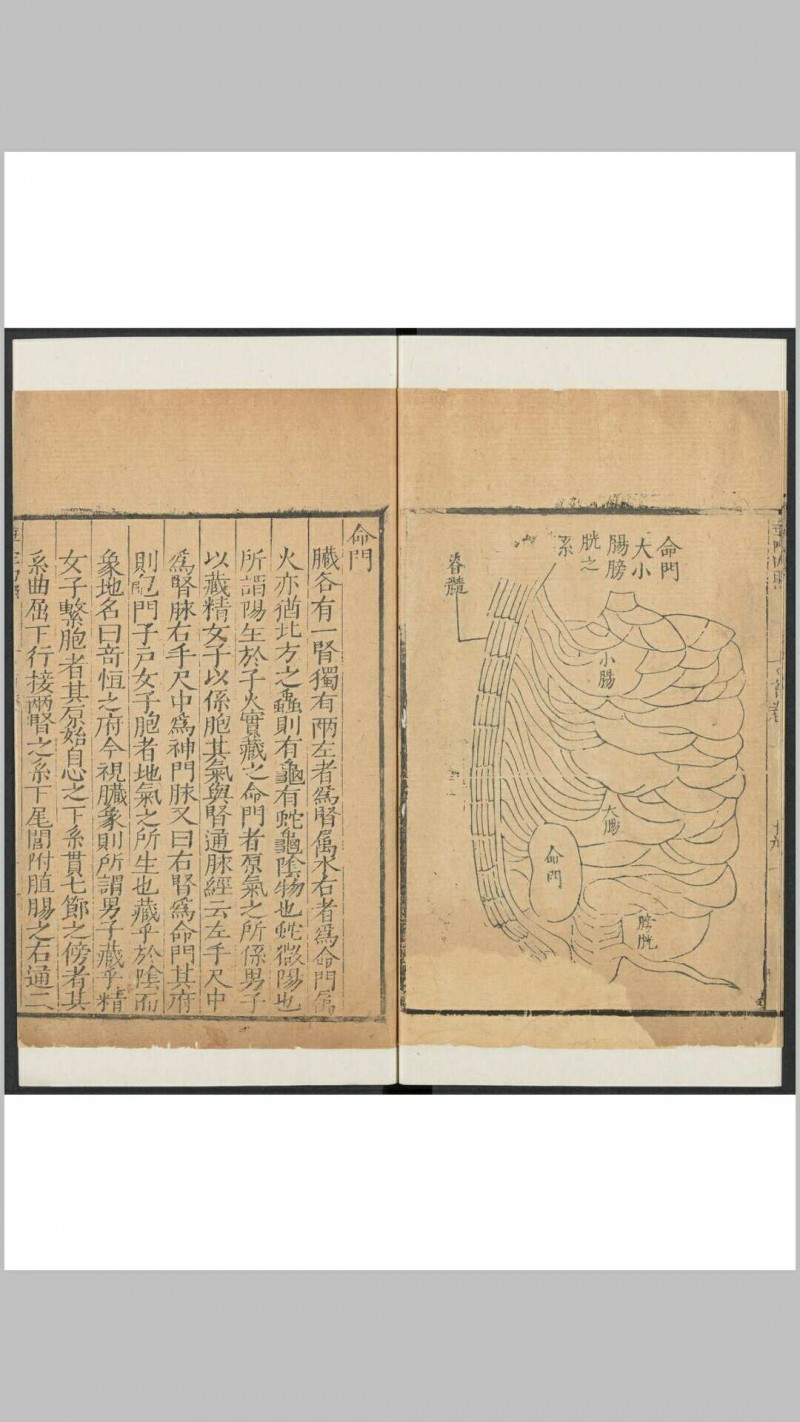 命門
大小
腸膀
胱之
系
脊髓
小腸
大腸
命門
膀胱
命門
臟各有一腎獨有兩左者爲腎屬水右者爲命門屬
火亦猶北方之蟲則有龜有蛇龜陰物也蛇微陽也
所謂陽生於子火實藏之命門者原氣之所係男子
以藏精女子以係胞其氣與腎通脉經云左手尺中
爲腎脉右手尺中爲神門脉又曰右腎爲命門其府
則胞門子戶女子胞者地氣之所生也藏乎於陰而
象地名曰奇恒之府今視臟象則所謂男子藏乎精
女子繫胞者其原始自心之下系貫七節之傍者其
系曲屈下行接兩腎之系下尾閭附脏腸之右通二